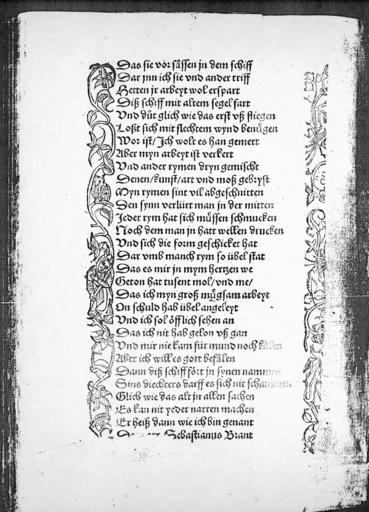 Das sie vor sässen jn dem schiff
Dar jnn ich sie vnd ander triff
Hetten jr arbeyt wol erspart
Diß schiff mit altem segel fart
Vnd düt glich wie das erst vß fliegen
Loßt sich mit slechtem wynd benügen
Wor ist / Jch wolt es han gemert
Aber myn arbeyt ist verkert
Vnd ander rymen dryn gemischt
Denen / kunst / art vnd moß gebryst
Myn rymen sint vil abgeschnitten
Den synn verlürt man jn der mitten
Jeder rym hat sich müssen schmucken
Noch dem man jn hatt wellen drucken
Vnd sich die form geschicket hat
Dar vmb manch rym so übel stat
Das es mir jn mym hertzen we
Geton hat tusent mol / vnd me /
Das ich myn groß müg sam arbeyt
On schuld hab übel angeleyt
Vnd ich sol öfflich sehen an
Das ich nit hab gelon vß gan
Vnd mir nie kam für mund noch kälen
Aber ich will es gott befälen
Dann diß schiff fört jn synen nammen
Sins diechters darff es sich nit schammen
Glich wie das alt jn allen sachen
Es kan nit yeder narren machen
Er heiß dann wie ich bin genant
Sebastianus Brant